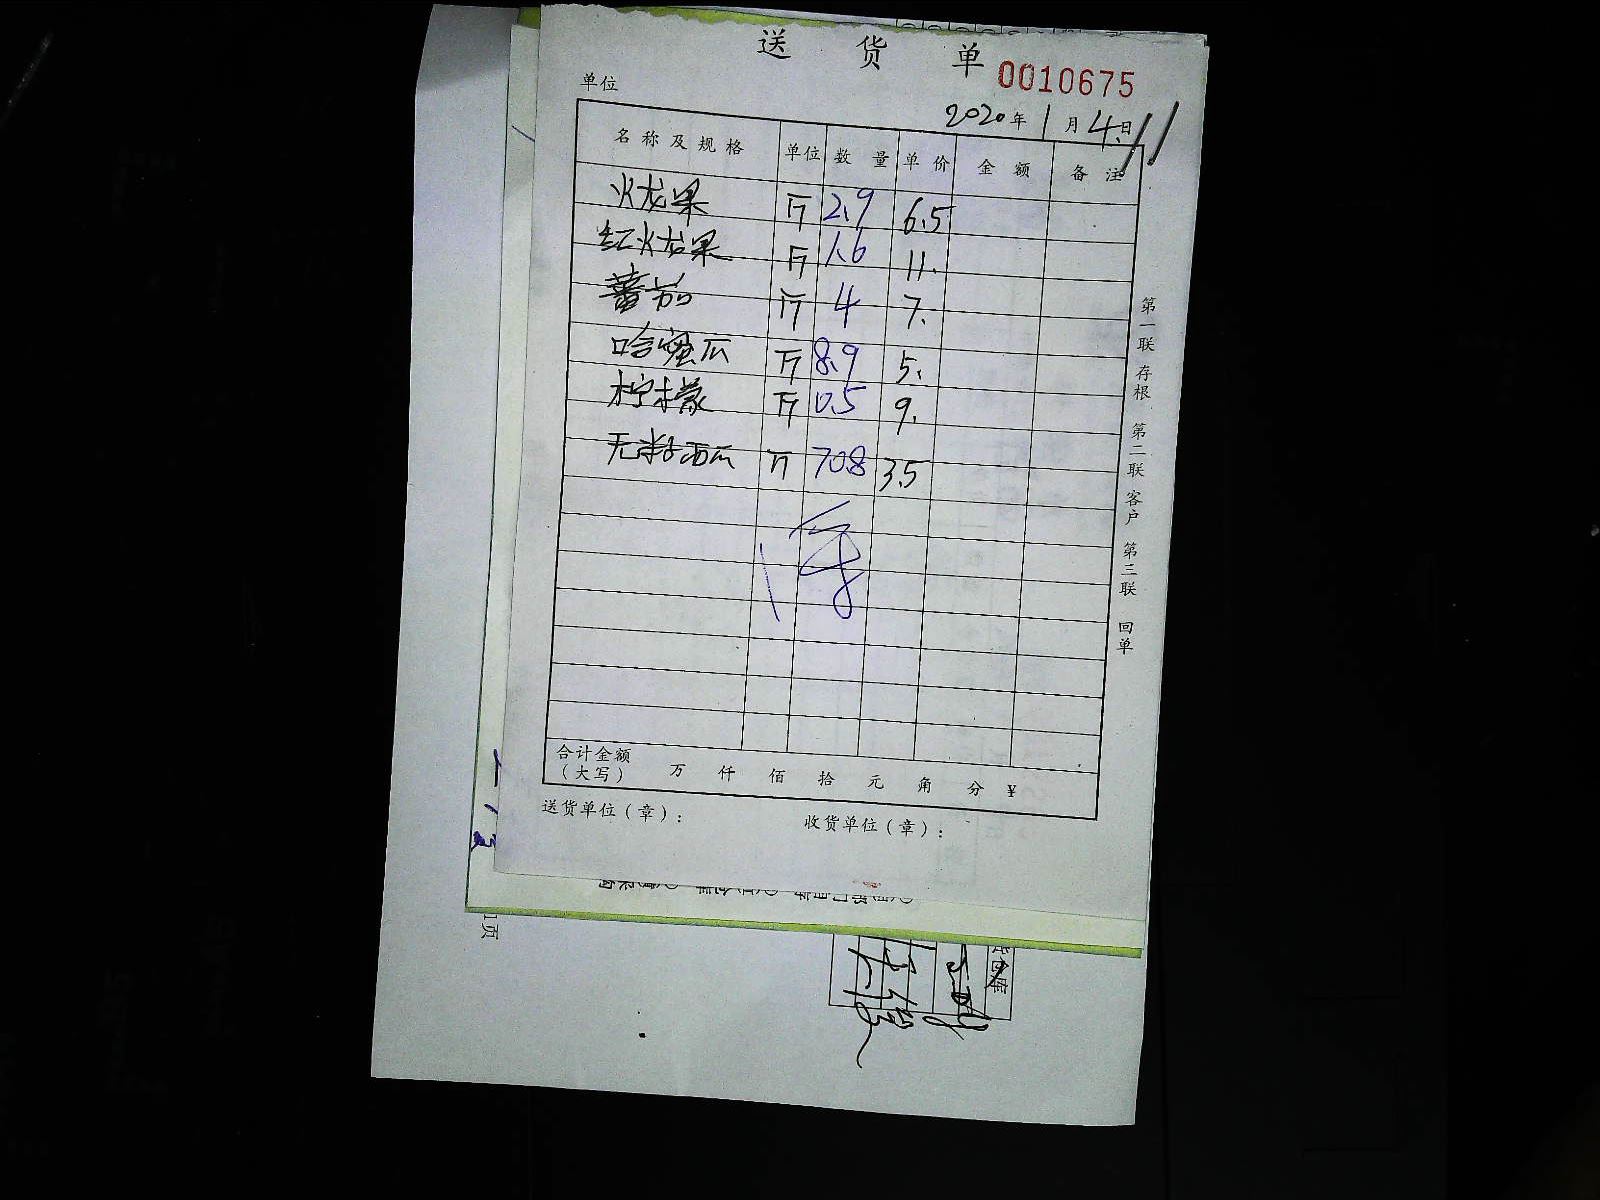 送货单
0010675
单位
2020年1月4日
名称及规格 单位 数量 单价 金额 备注
火龙果 斤 2.9 6.5
红火龙果 斤 1.6 11.
蕃茄 斤 4 7.
哈蜜瓜 斤 8.9 5.
柠檬 斤 0.5 9.
无籽西瓜 斤 70.8 3.5
合计金额
（大写） 万 仟 佰 拾 元 角 分 ¥
送货单位（章）： 收货单位（章）：
第一联 存根 第二联 客户 第三联 回单
页